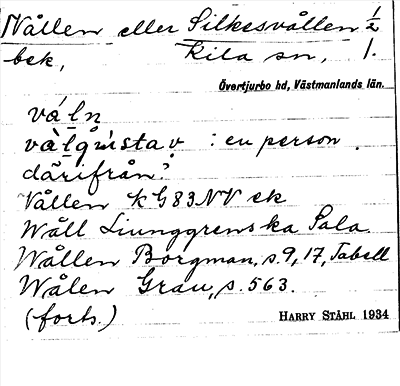 Vållen eller Silkesvållen 1/2
bek, Kila sn, 1.
Övertjurbo hd, Västmanlands län.
vá̱ln
và̱lgù́stav : en person
därifrån.
Vållen k G83NV ek
Wåll Liunggrenska Sala
Wållen Borgman, s. 9, 17, Tabell
Wålen Grau, s. 563.
(forts.)
HARRY STÅHL 1934